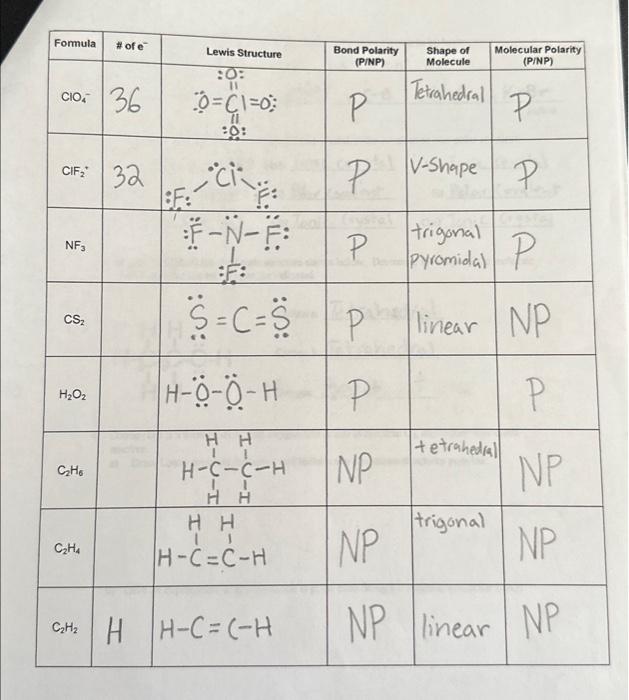 Formula # of e⁻ Lewis Structure Bond Polarity (P/NP) Shape of Molecule Molecular Polarity (P/NP)
ClO₄⁻ 36
:O:
||
O=Cl=O:
||
:O:
P Tetrahedral P
ClF₂⁺ 32
Cl
:F: F:
P V-Shape P
NF₃
:F-N-F:
|
:F:
P trigonal pyromidal P
CS₂ S=C=S P linear NP
H₂O₂ H-O-O-H P P
C₂H₆
H H
H-C-C-H
H H
NP tetrahedral NP
C₂H₄
H H
H-C=C-H
NP trigonal NP
C₂H₂ H H-C=C-H NP linear NP